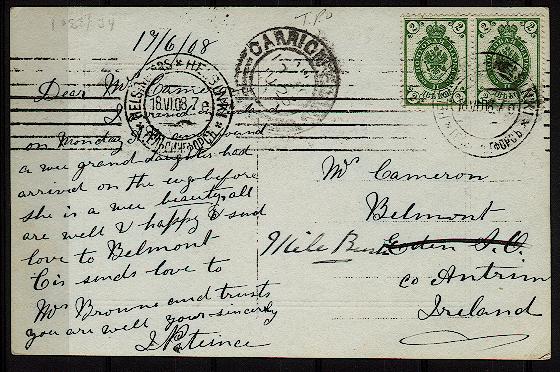 T.Po
17/6/08
CARRICK
HELSINGFORS * HELSINKI
18.VI.08.7
ГЕЛЬСИНГФОРСЪ
Dear Mrs Cameron
I
on Monday and found
a wee grand daughter had
arrived on the eve before
she is a wee beauty all
are well & happy & send
love to Belmont
Cis sends love to
Mrs Browne and trusts
you are well your sincerely
Mrs Cameron
Belmont
Mile Bush Eden P.O.
Co Antrim
Ireland